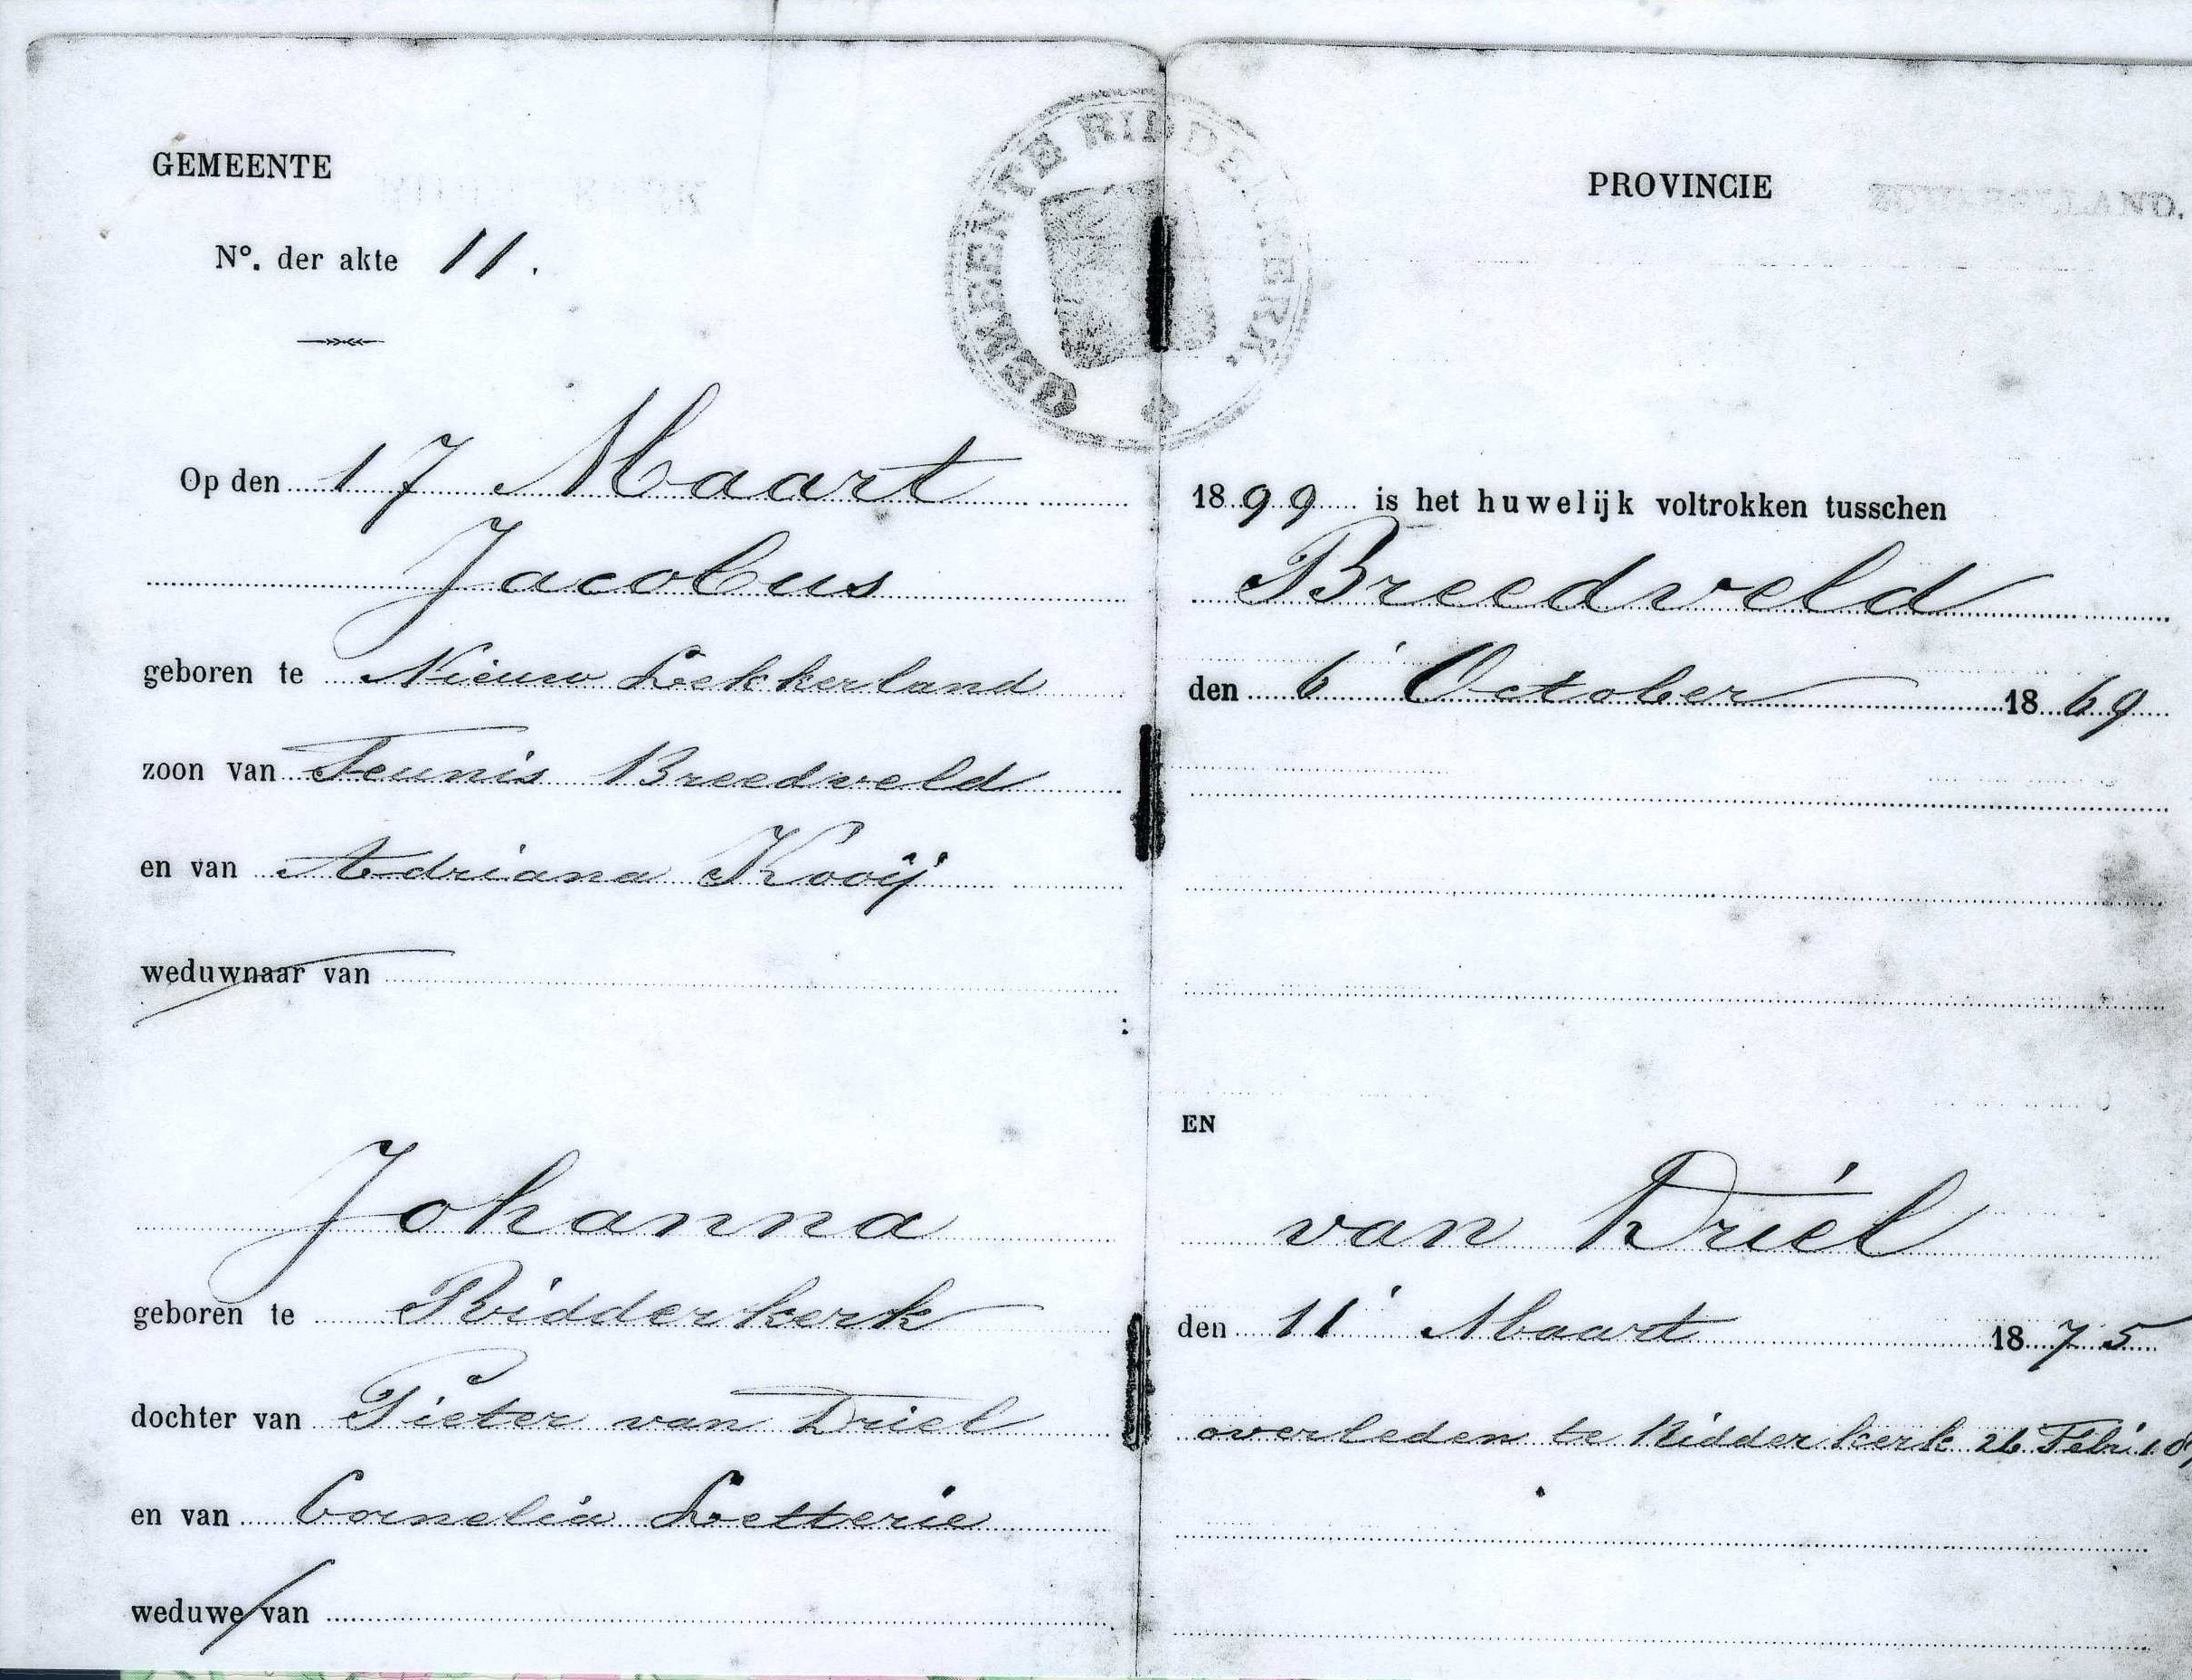 GEMEENTE
N°. der akte 11.
GEMEENTE RIDDERKERK.
PROVINCIE ZUID-HOLLAND.
Op den 17 Maart 1899 is het huwelijk voltrokken tusschen
Jacobus Breedveld
geboren te Nieuw Lekkerland den 6 October 1869
zoon van Teunis Breedveld
en van Adriana Kooij
weduwnaar van
EN
Johanna van Driel
geboren te Ridderkerk den 11 Maart 1875
dochter van Pieter van Driel
overleden te Ridderkerk 26 Febri
en van Cornelia Letterie
weduwe van